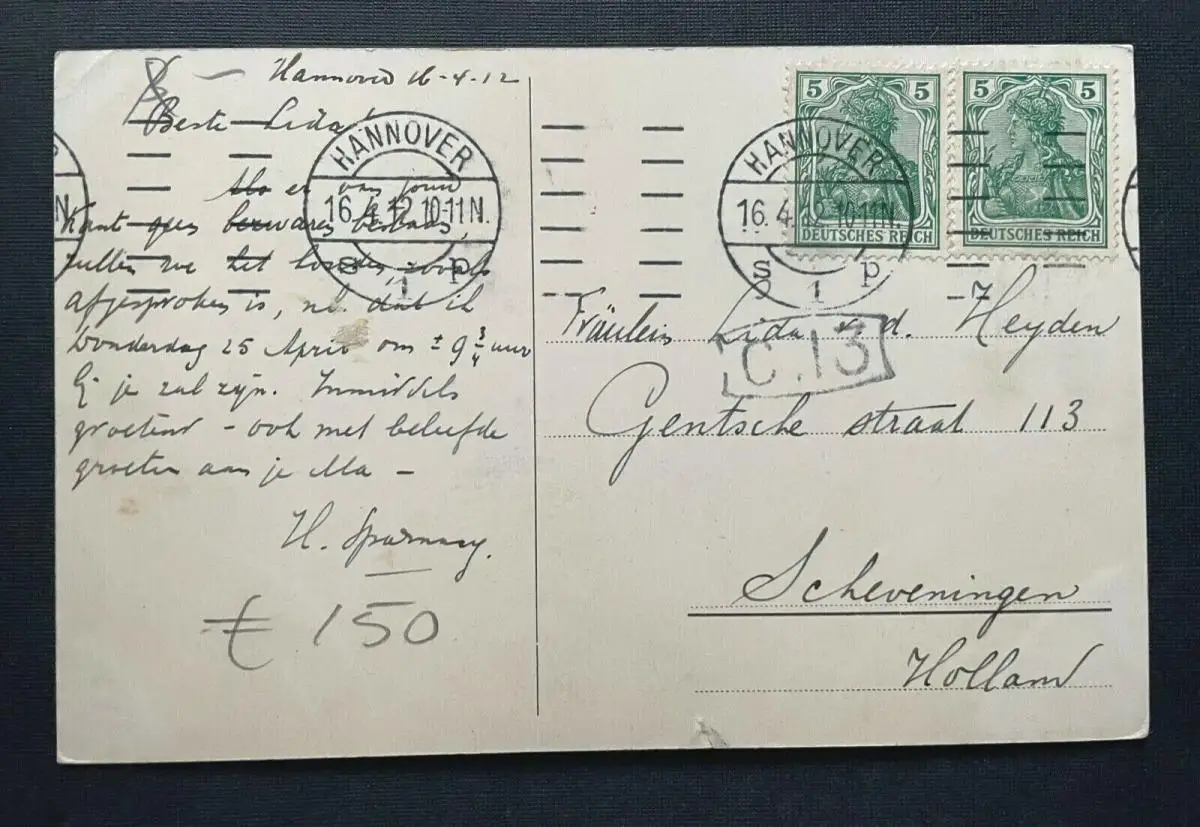 Hannover 16-4-12
Beste Lida!
Als er van jouw
kant geen bezwaren bestaan,
zullen we het houden, zooals
afgesproken is, nl. dat ik
Donderdag 25 April om ± 9 3/4 uur
bij je zal zijn. Inmiddels
groetend - ook met beleefde
groeten aan je Ma -
H. Sparnaay.
€ 150
HANNOVER
16.4.12.10-11N.
S 1 p
HANNOVER
16.4.12.10-11N.
S 1 p
5 5
DEUTSCHES REICH
5 5
DEUTSCHES REICH
C.13
Fräulein Lida v. d. Heyden
Gentsche straat 113
Scheveningen
Holland